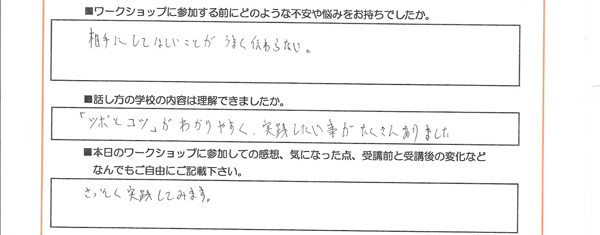 ■ワークショップに参加する前にどのような不安や悩みをお持ちでしたか。
相手にしてほしいことが うまく伝わらない。
■話し方の学校の内容は理解できましたか。
「ツボとコツ」が わかりやすく、実践したい事がたくさんありました
■本日のワークショップに参加しての感想、気になった点、受講前と受講後の変化など
なんでもご自由にご記載下さい。
さっそく実践してみます。